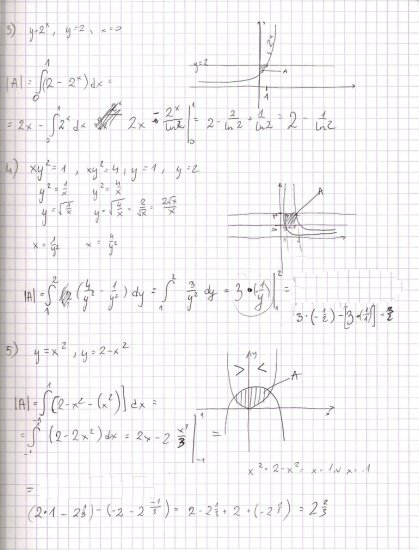 3) y=2^x, y=2, x=0
y=2
2^x
A
1
|A| = ∫_0^1 (2 - 2^x) dx =
= 2x - ∫_0^1 2^x dx 2x - 2^x/ln2 |_0^1 = 2 - 2/ln2 + 1/ln2 = 2 - 1/ln2
4) xy²=1, xy²=4, y=1, y=2
y²=1/x y²=4/x
y=√(1/x) y=√(4/x) = 2/√x = 2√x/x
x=1/y² x=4/y²
A
|A| = ∫_1^2 (4/y² - 1/y²) dy = ∫_1^2 3/y² dy = 3·(-1/y) |_1^2 =
3·(-1/2) - [3·(-1/1)] = 3/2
5) y=x², y=2-x²
y
A
|A| = ∫_-1^1 [2-x²-(x²)] dx =
= ∫_-1^1 (2-2x²) dx = 2x - 2 x³/3 |_-1^1 =
x²=2-x² x=1 ∨ x=-1
=
(2·1 - 2 1/3) - (-2 - 2 -1/3) = 2 - 2 1/3 + 2 + (-2 1/3) = 2 2/3